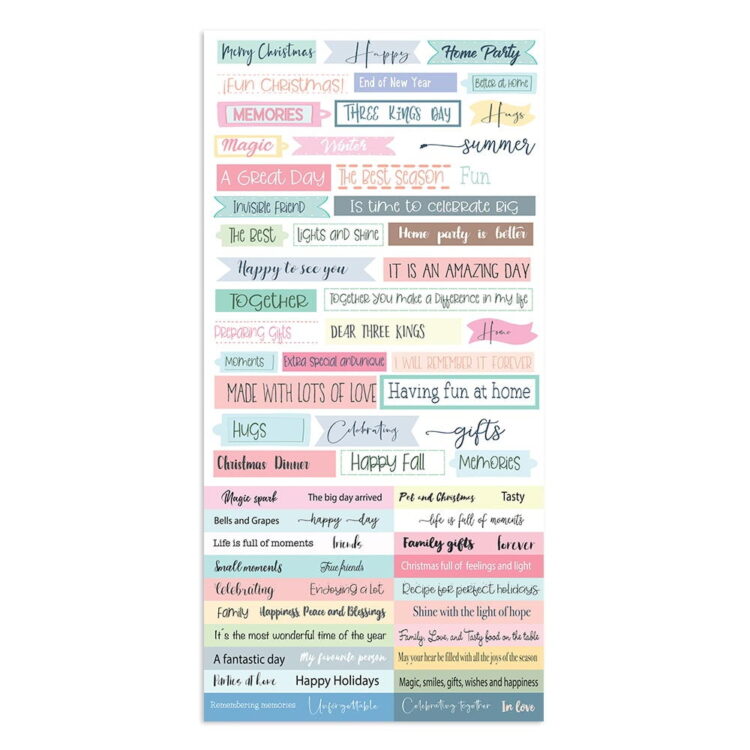 Merry Christmas Happy Home Party
¡Fun Christmas! End of New Year Better at home
MEMORIES THREE KINGS DAY Hugs
Magic Winter summer
A Great Day The Best Season Fun
Invisible friend Is time to celebrate big
The Best Lights and shine Home party is better
Happy to see you IT IS AN AMAZING DAY
Together Together you make a difference in my life
Preparing gifts DEAR THREE KINGS Home
Moments Extra special andunique I WILL REMEMBER IT FOREVER
MADE WITH LOTS OF LOVE Having fun at home
HUGS Celebrating gifts
Christmas Dinner Happy Fall Memories
Magic spark The big day arrived Pet and Christmas Tasty
Bells and Grapes happy day life is full of moments
Life is full of moments friends Family gifts forever
Small moments True friends Christmas full of feelings and light
Celebrating Enjoying a lot Recipe for perfect holidays
Family Happiness, Peace and Blessings Shine with the light of hope
It´s the most wonderful time of the year Family, Love, and Tasty food on the table
A fantastic day My favourite person May your hear be filled with all the joys of the season
Parties at home Happy Holidays Magic, smiles, gifts, wishes and happiness
Remembering memories Unforgettable Celebrating together In love